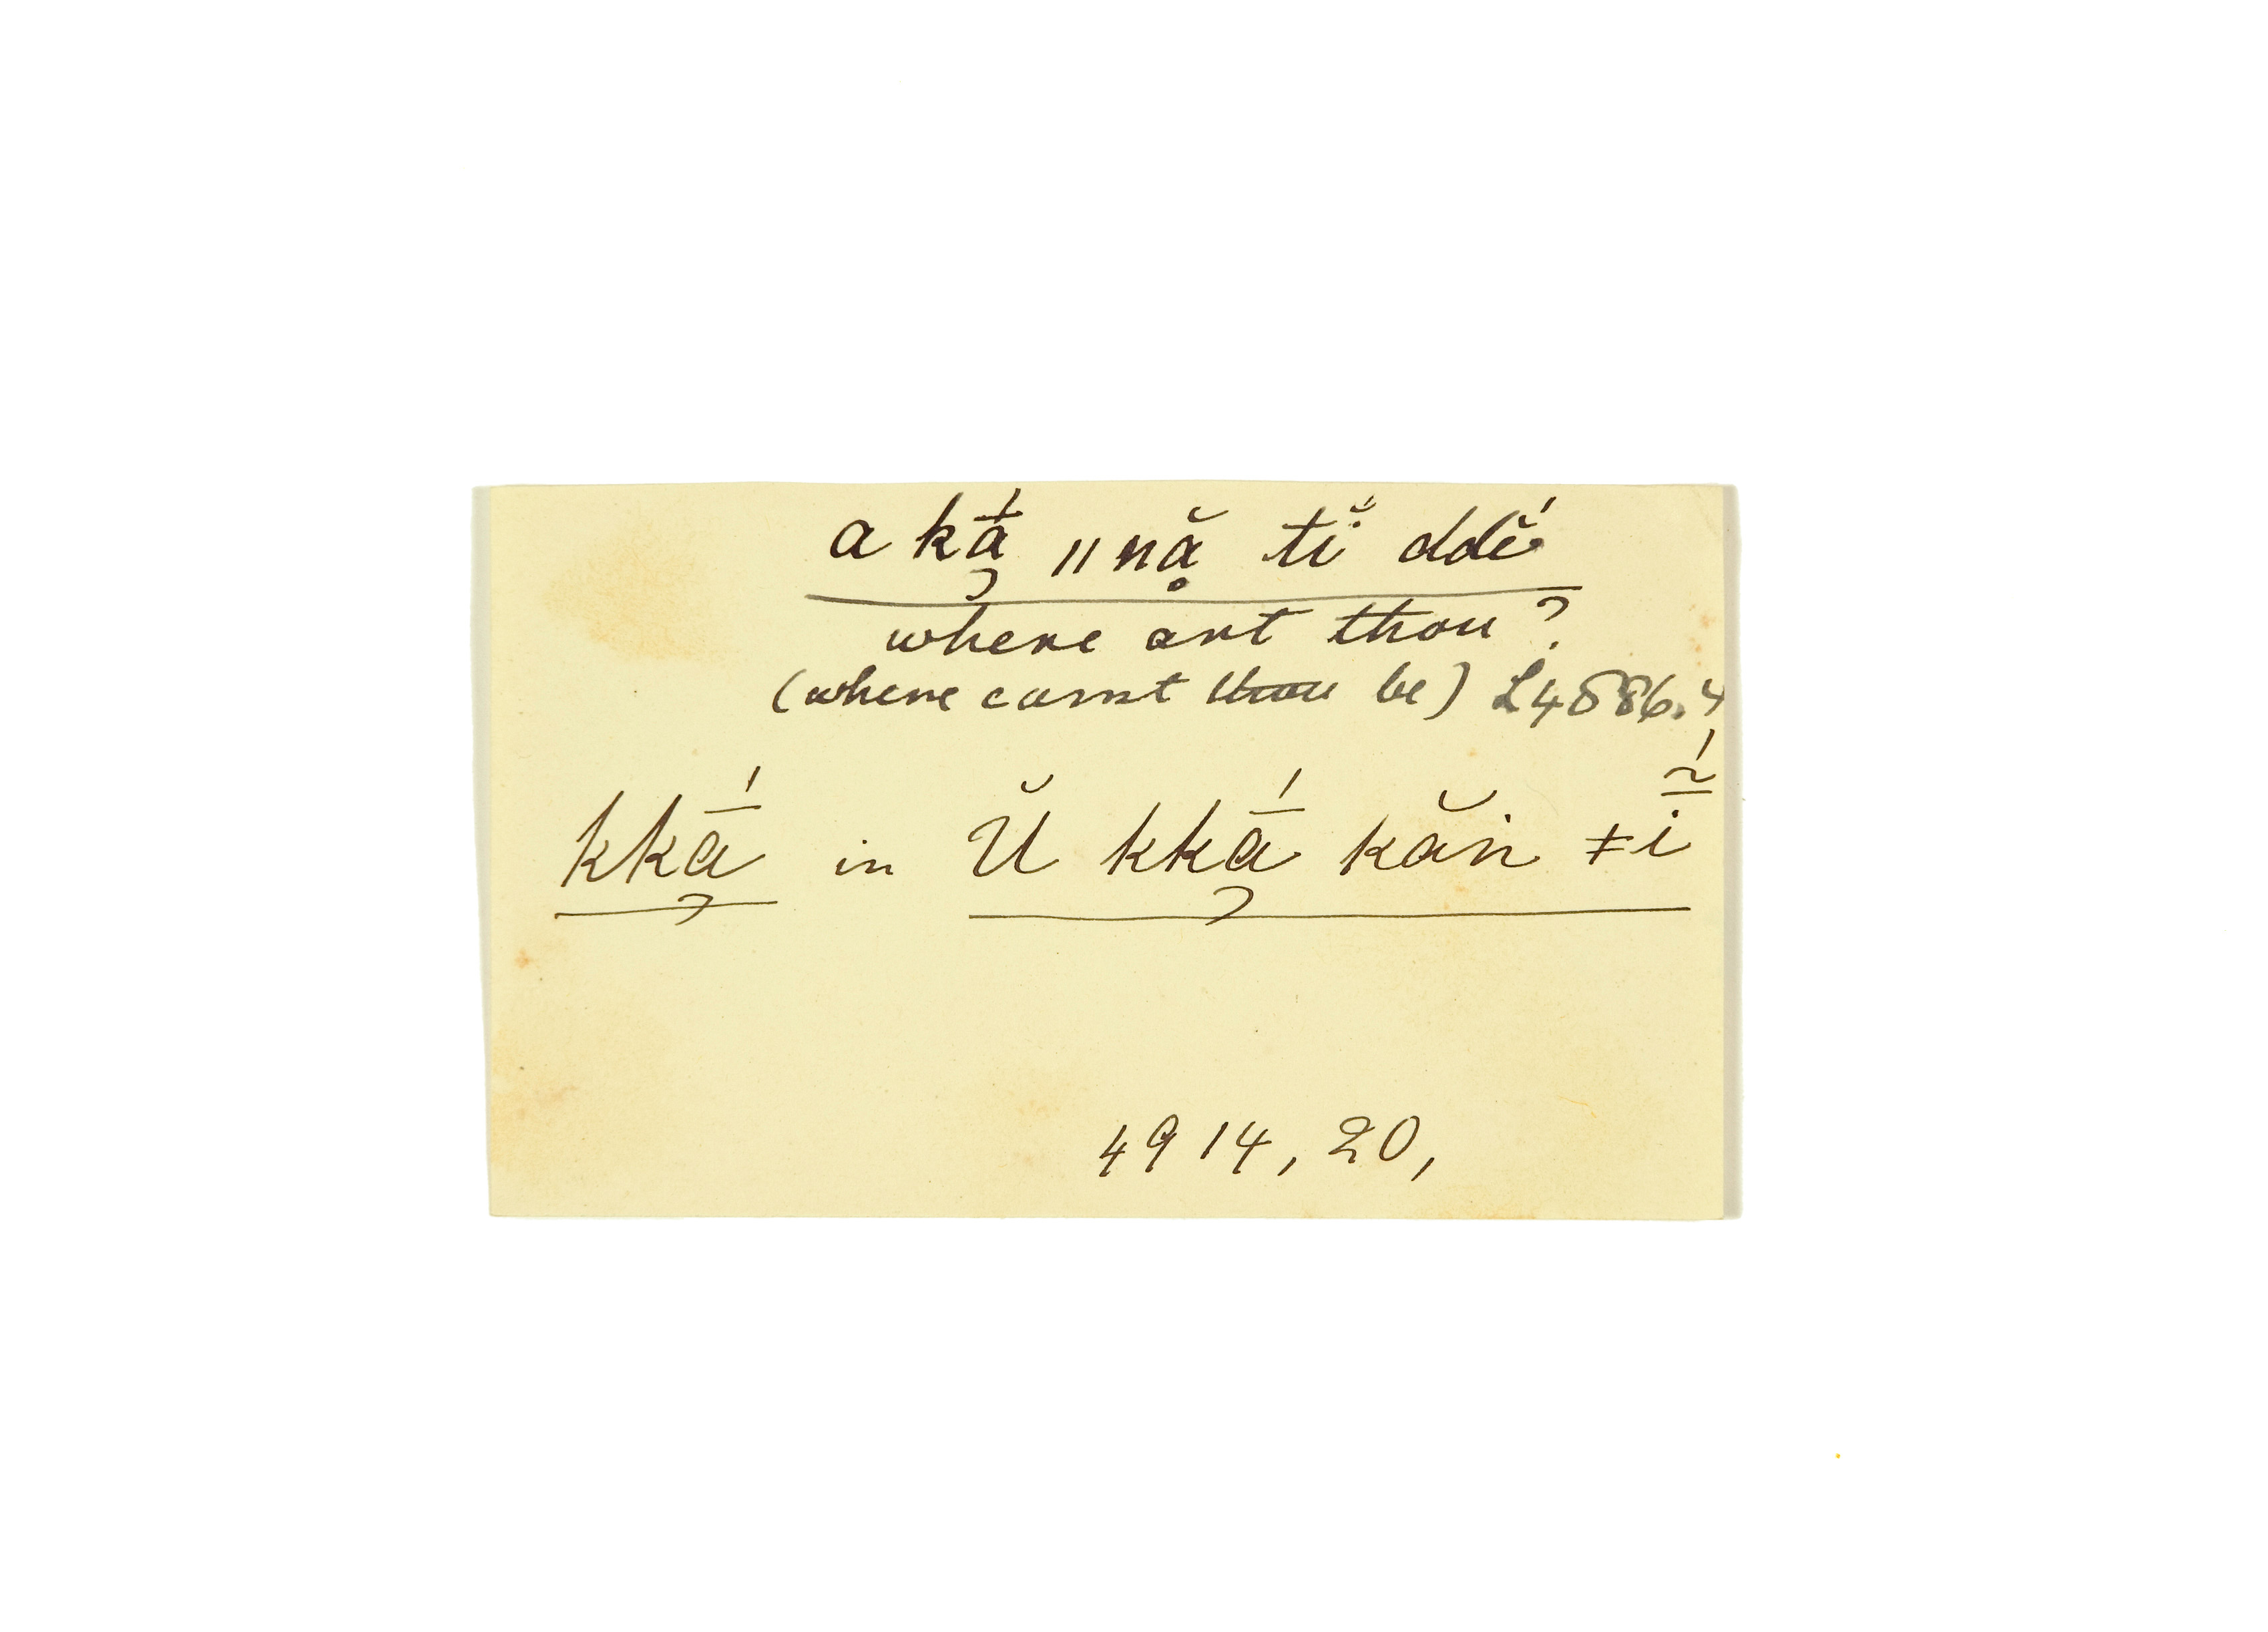 a kā̦́ ǁnḁ̆ tĭ ddĕ́
where art thou?
(where canst ~~thou~~ be) L 4886.4
kkā̦́ in Ŭ kkā̦́ kăn ǂī̃́
4914, 20,